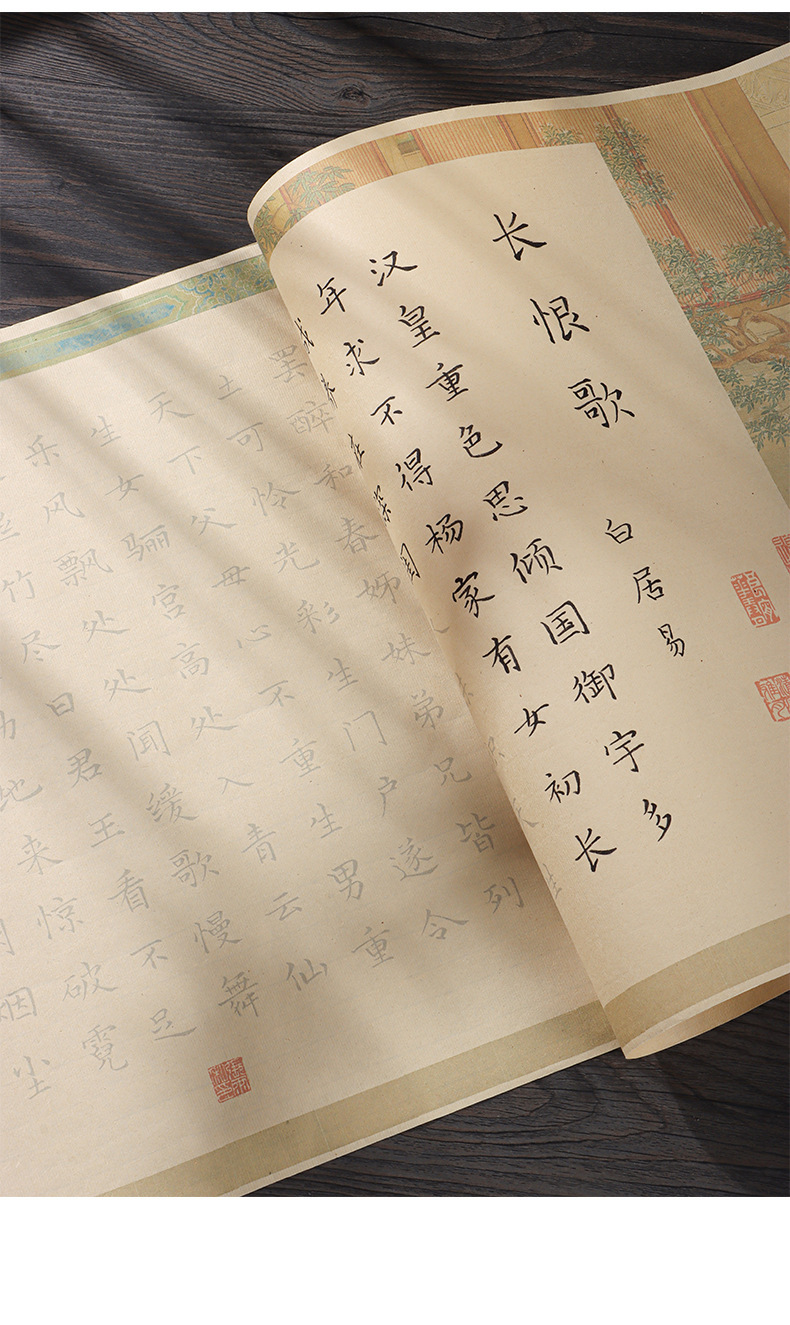 长恨歌
白居易
汉皇重色思倾国御宇多
年求不得杨家有女初长
罢醉和春姊妹弟兄皆列
土可怜光彩生门户遂令
天下父母心不重生男重
生女骊宫高处入青云仙
乐风飘处处闻缓歌慢舞
竹尽日君王看不足
地来惊破霓
烟尘